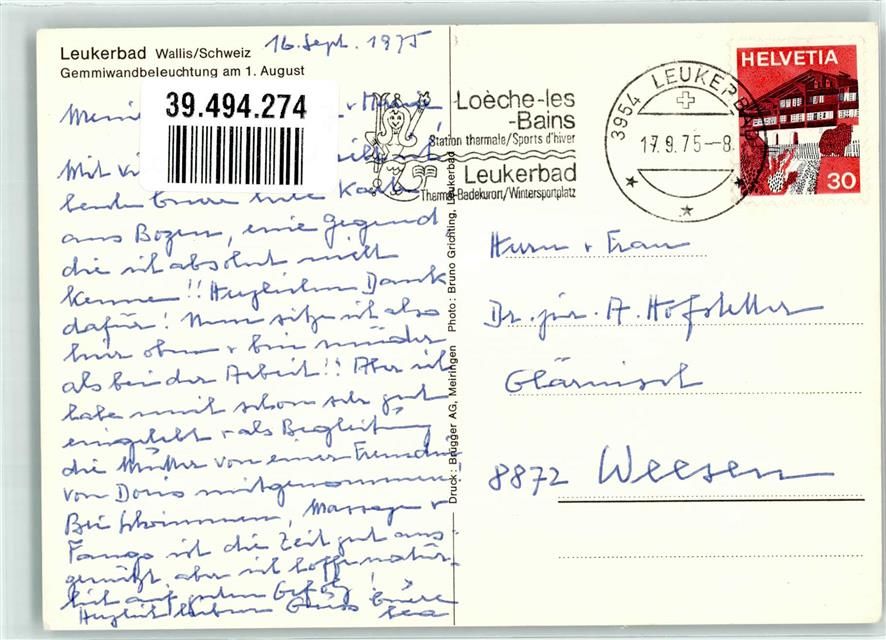 Leukerbad Wallis/Schweiz
Gemmiwandbeleuchtung am 1. August
16. Sept. 1975
39.494.274
Mit
aus Bozen, eine Gegend
die ich absolut nicht
kenne!! Herzlichen Dank
dafür! Nun sitze ich also
hier oben + bin müder
als bei der Arbeit!! Aber ich
habe mich schon sehr gut
eingelebt + als Begleitung
die Mutter von einer Freundin
von Doris mitgenommen.
Bei Schwimmen, Massage +
Fango ist die Zeit gut aus-
genützt, aber ich hoffe natür-
lich auf guten Erfolg!
Herzlich lieben Gruss Euere
Druck: Brügger AG, Meiringen Photo: Bruno Grichting, Leukerbad
Loèche-les
-Bains
Station thermale/Sports d'hiver
Leukerbad
Thermal-Badekurort/Wintersportplatz
3954 LEUKERBAD
17.9.75-8
HELVETIA
30
Herrn + Frau
Dr. jur. A. Hofstetter
Glärnisch
8872 Weesen